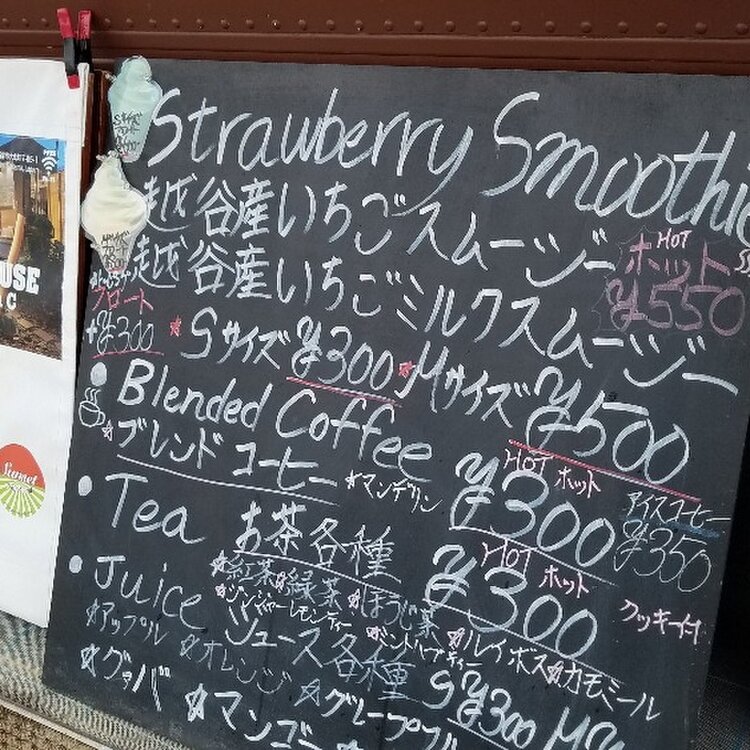 Strawberry Smoothi
越谷産いちごスムージー
HOT
ホット
¥550
越谷産いちごミルクスムージー
フロート
+¥300
☆Sサイズ ¥300 ☆Mサイズ ¥500
Blended Coffee
☆ブレンドコーヒー ☆マンデリン
HOT ホット
¥300
アイスコーヒー
¥350
Tea お茶各種
HOT ホット
¥300
クッキー付
☆紅茶☆緑茶☆ほうじ茶
☆ジンジャーレモンティー
☆ミントハーブティー
☆ルイボス☆カモミール
Juice ジュース各種
S¥300
☆アップル ☆オレンジ
☆グァバ ☆マンゴー ☆グレープフル
USE
C
Sunset